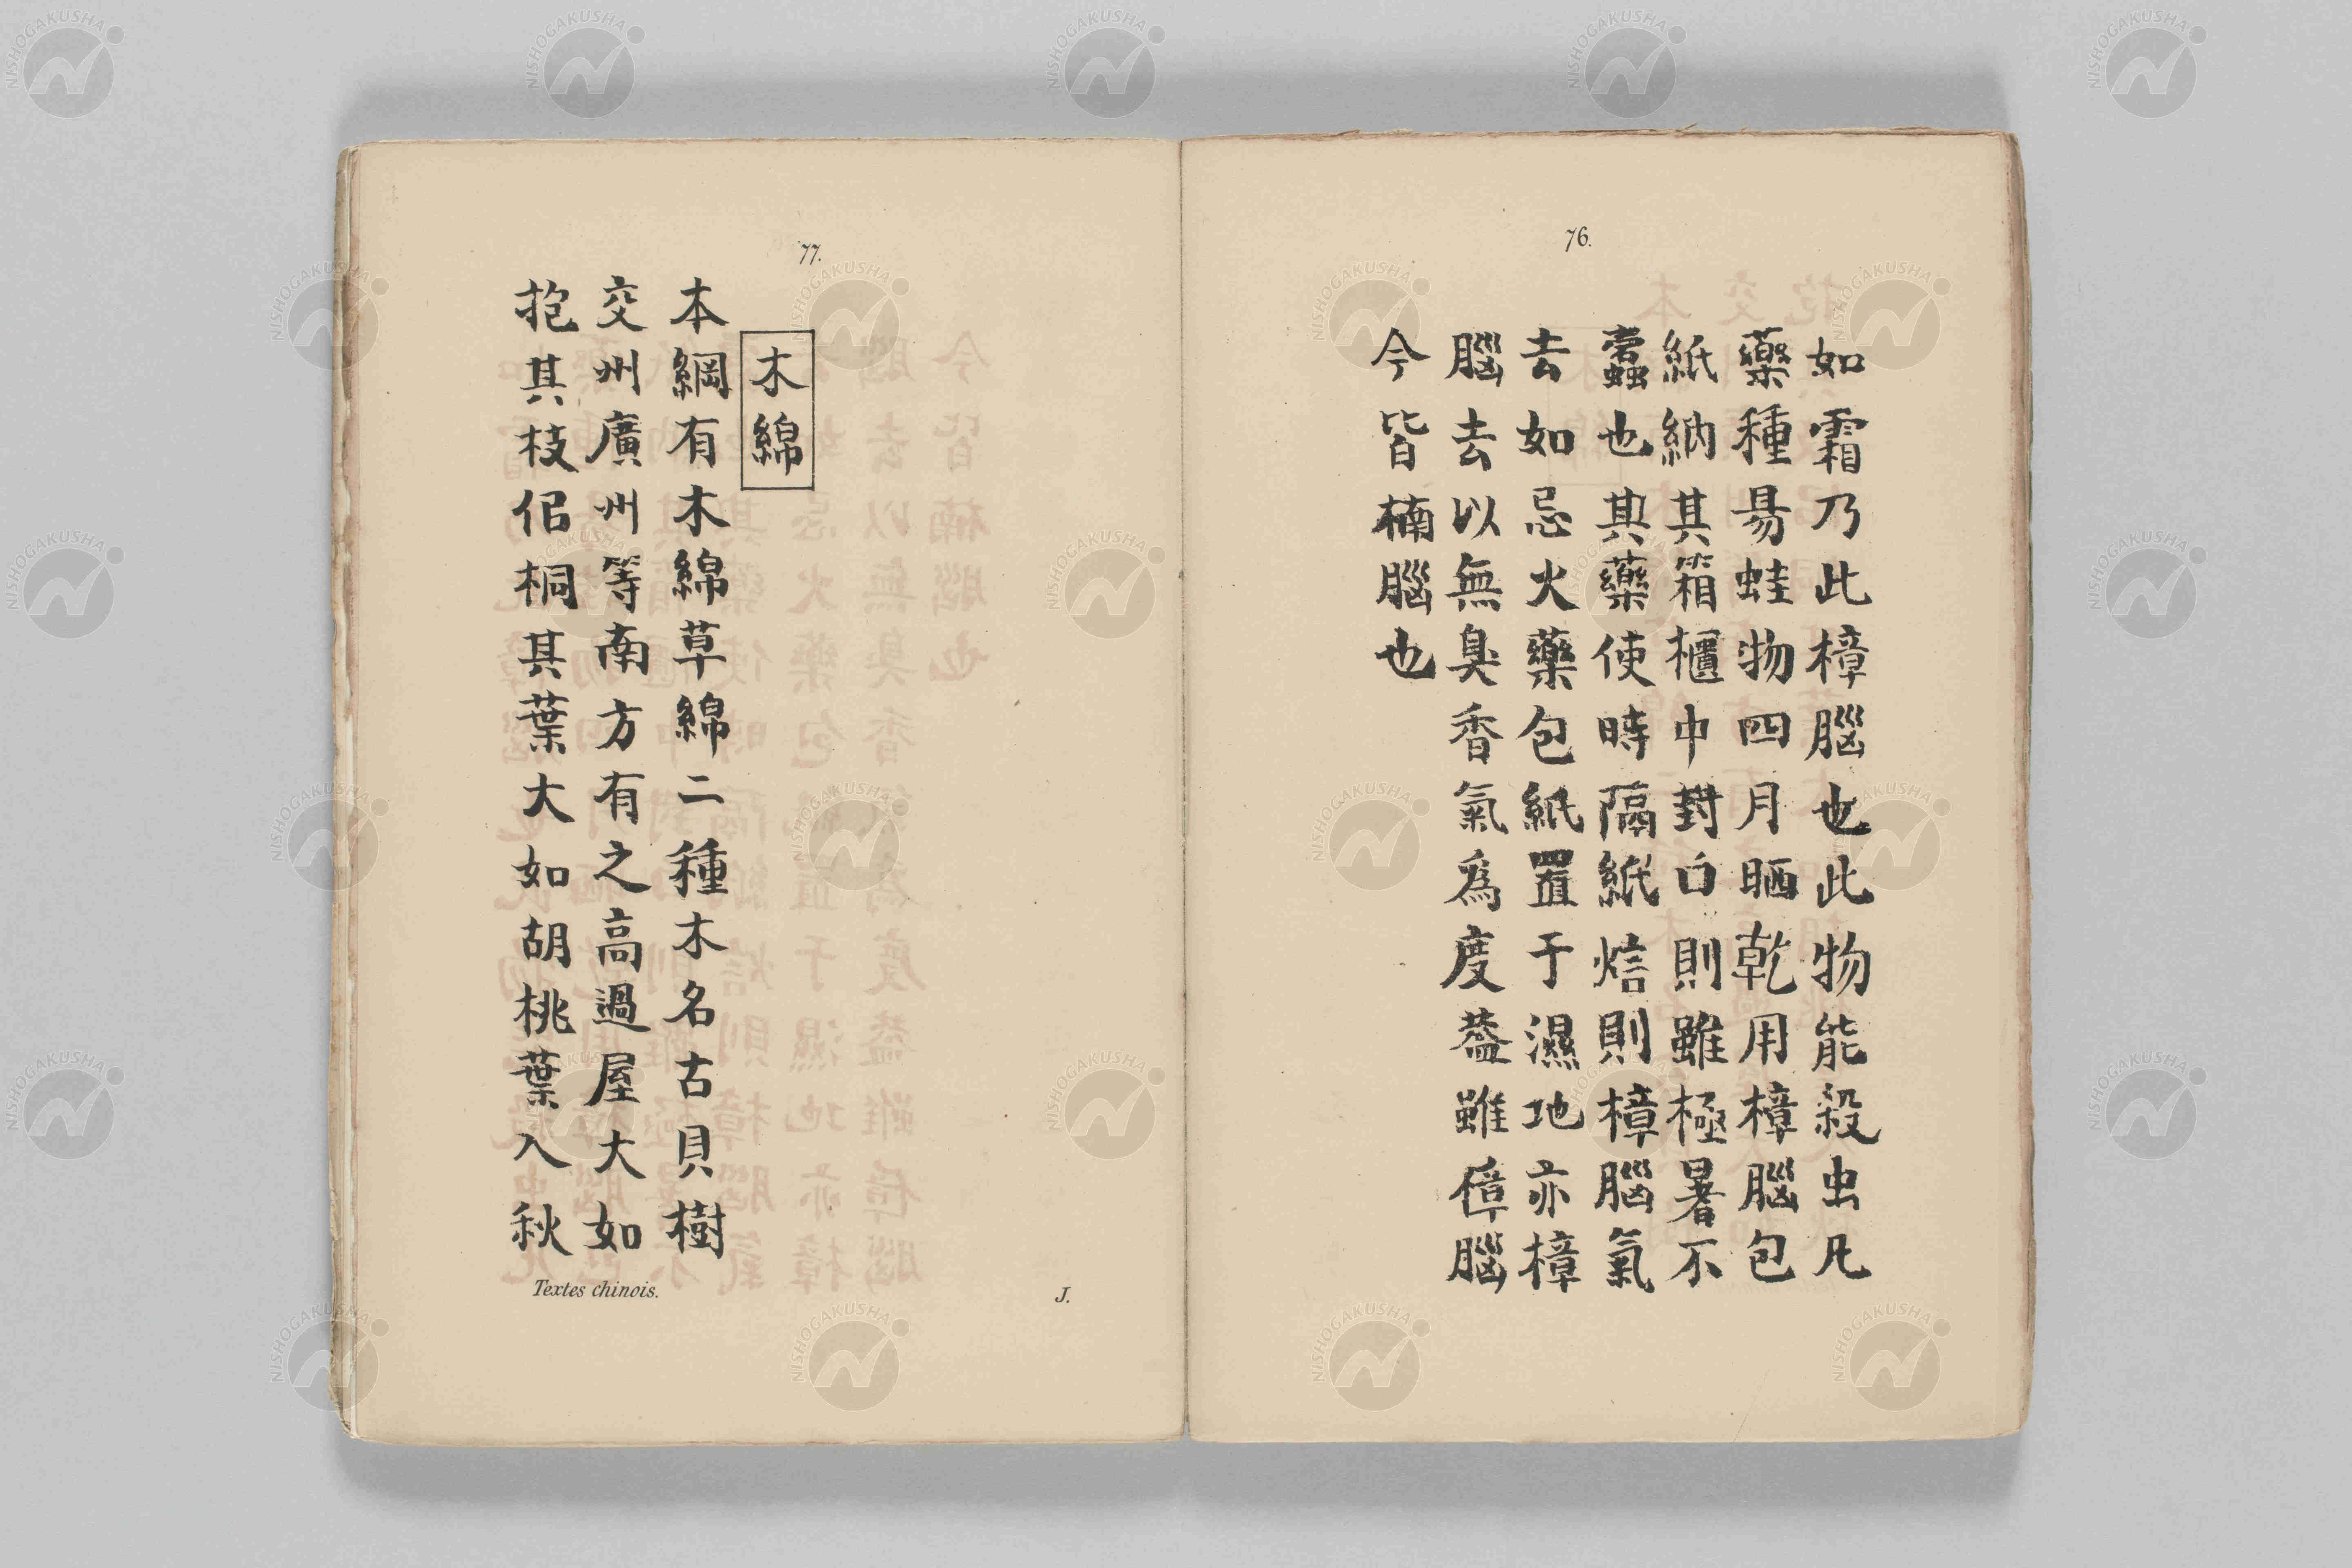 76.
如霜乃此樟腦也此物能殺虫凡
藥種昜蛀物四月晒乾用樟腦包
紙納其箱櫃中封白則雖極暑不
蠹也其藥使時隔紙焙則樟腦氣
去如忌火藥包紙置于濕地亦樟
腦去以無臭香氣爲度葢雖傽腦
今皆楠腦也
77.
木綿
本綱有木綿草綿二種木名古貝樹
交州廣州等南方有之高過屋大如
抱其枝佀桐其葉大如胡桃葉入秋
Textes chinois.
J.
NISHOGAKUSHA